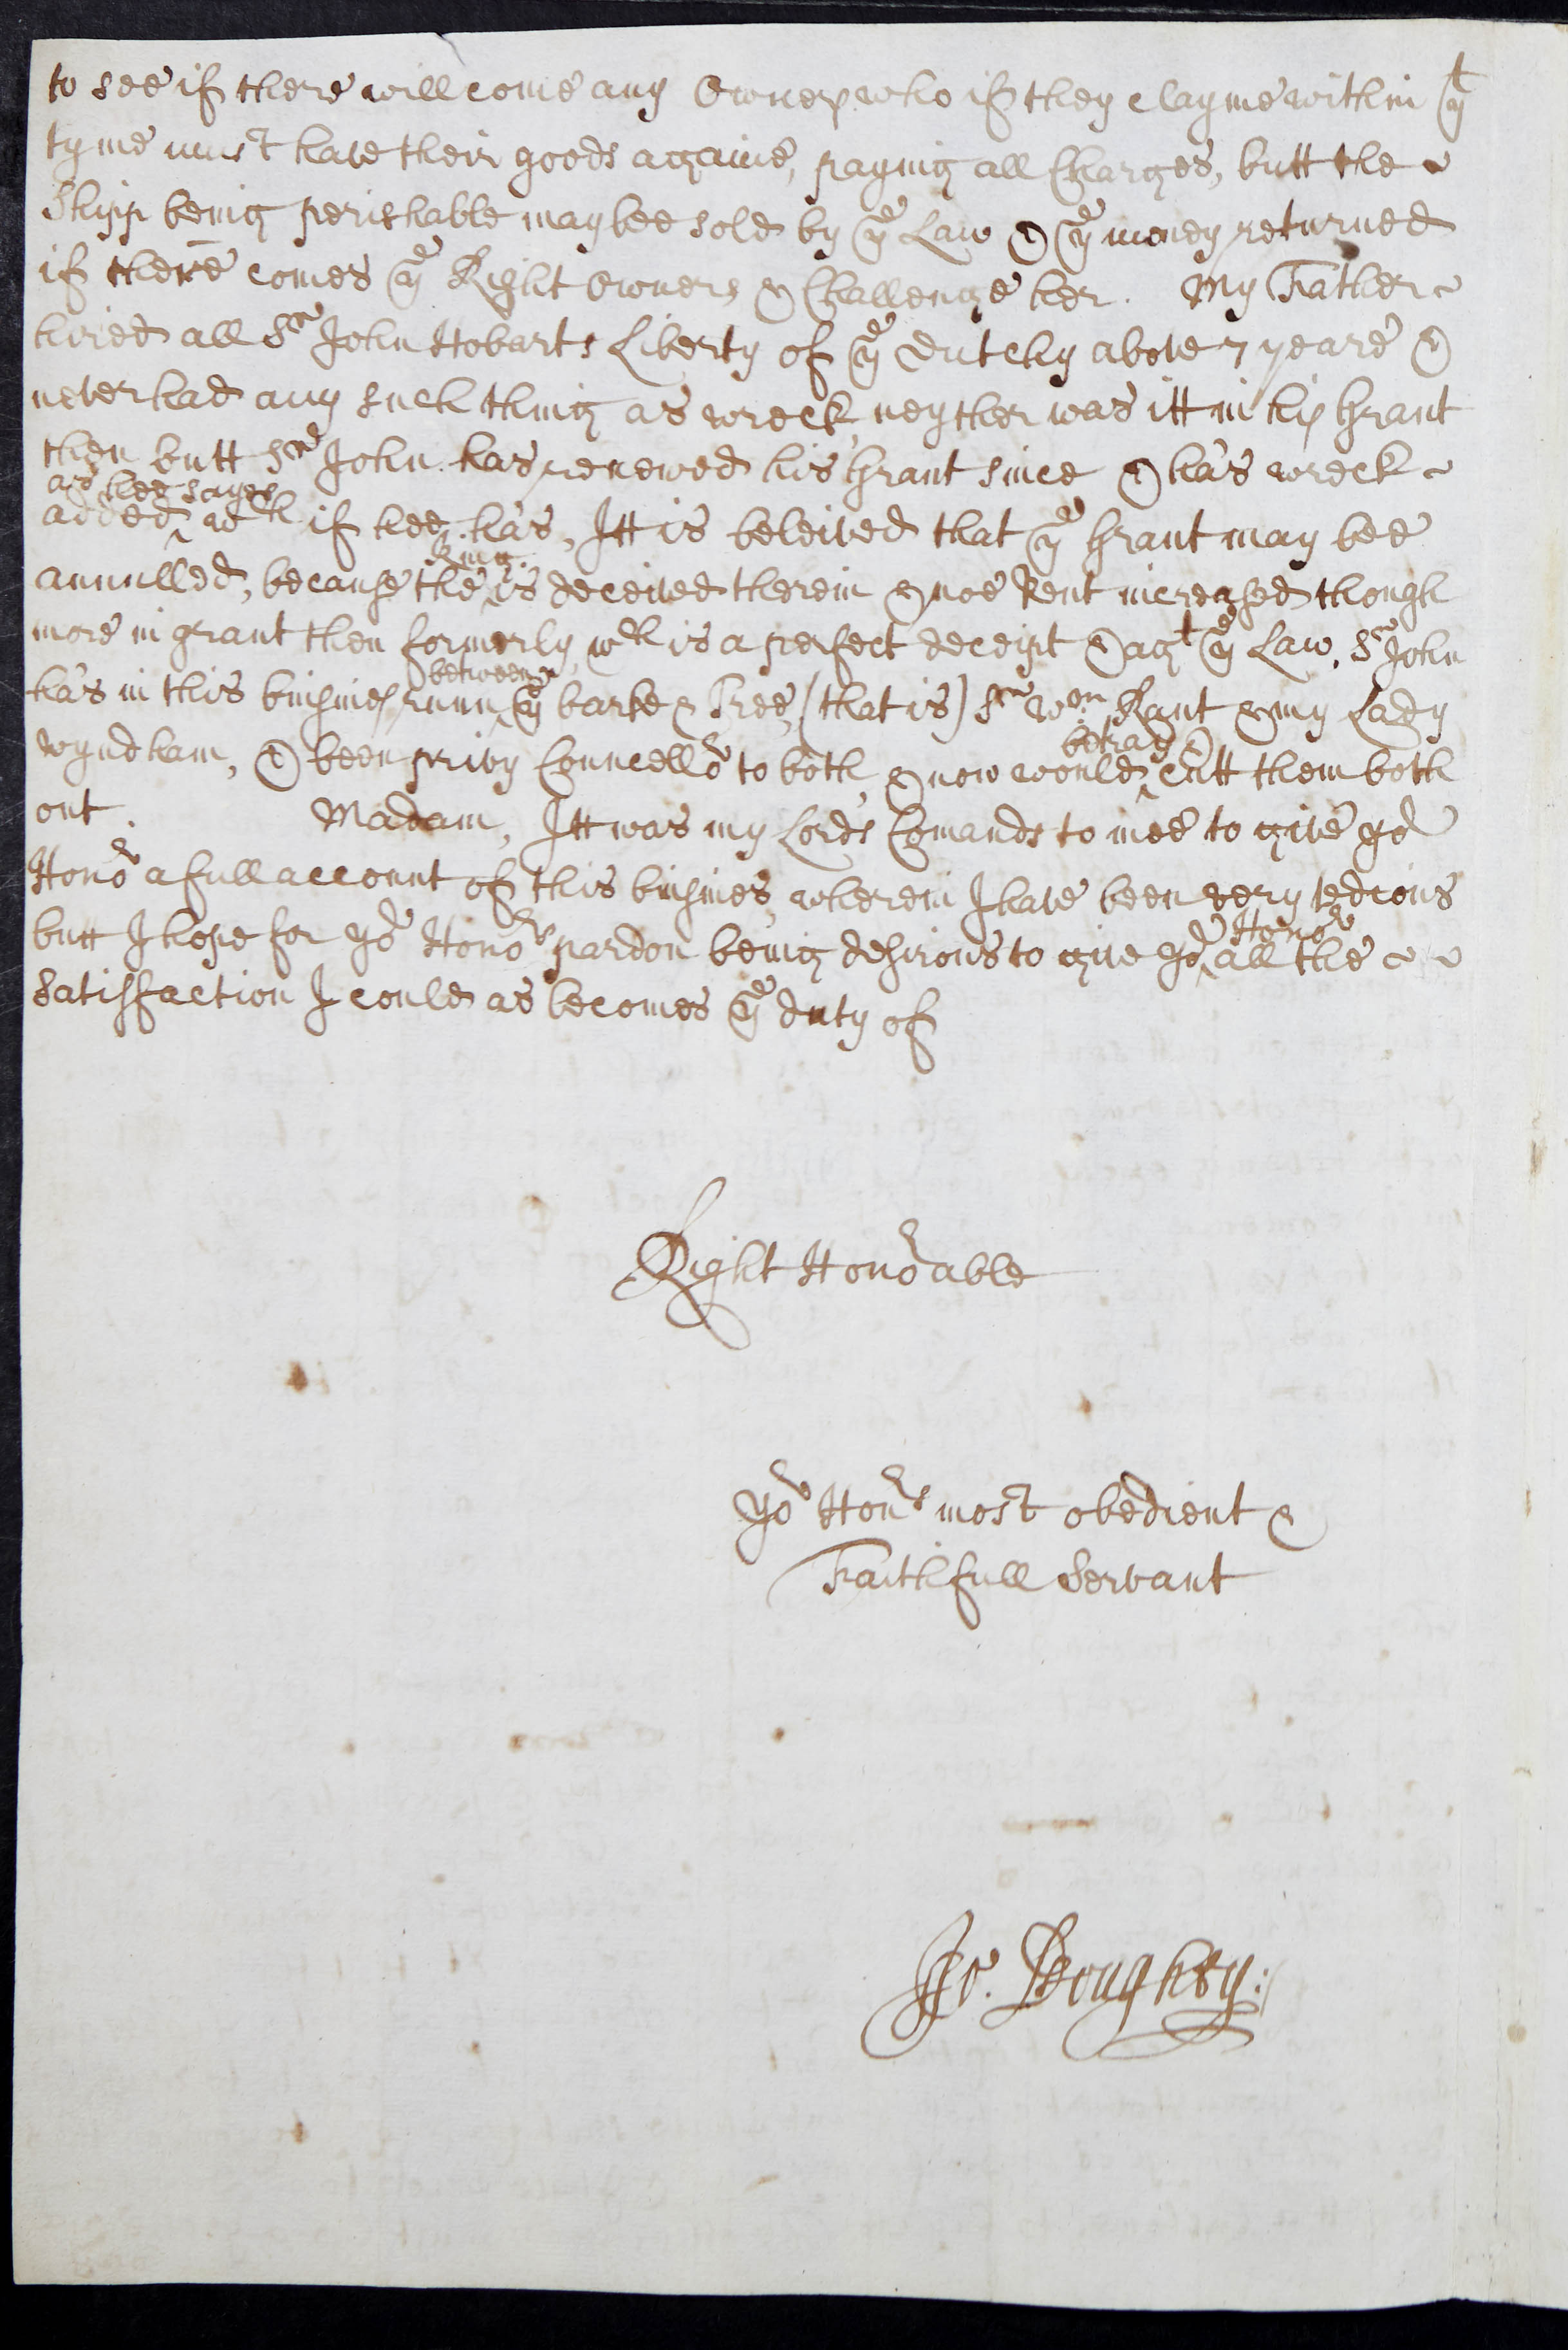 to see if there will come any Owners who if they clayme within yt
tyme must have their goods againe, paying all Charges, butt the
Shipp being perishable may bee sold by ye Law & ye money returned
if there comes ye Right Owners & Challenge her. My Father
hired all Sr John Hobarts Liberty of ye Dutchy above 7 yeare &
never had any such thing as wreck, neyther was itt in his Grant
then butt Sr John has renewed his Grant since & has wreck
as hee sayes
added ^ wch if hee has, Itt is beleived that ye Grant may bee
King
annulled, because the ^ is deceived therein & noe Rent increased though
more in grant then formerly, wch is a perfect deceipt & agt ye Law, Sr John
between
has in this busines runn ^ ye barke & Tree, (that is) Sr Wm Rant & my Lady
betray &
Wyndham, & been privy Councellor to both, & now would ^ cutt them both
out. Madam, Itt was my Lords Comands to mee to give yor
Honor a full account of this busines, wherein I have been very tedious
Honor
butt I hope for yor Honors pardon being desirous to give yor ^ all the
Satisfaction I could as becomes ye duty of
Right Honorable
yor Honrs most obedient &
Faithfull Servant
Jo. Doughty: